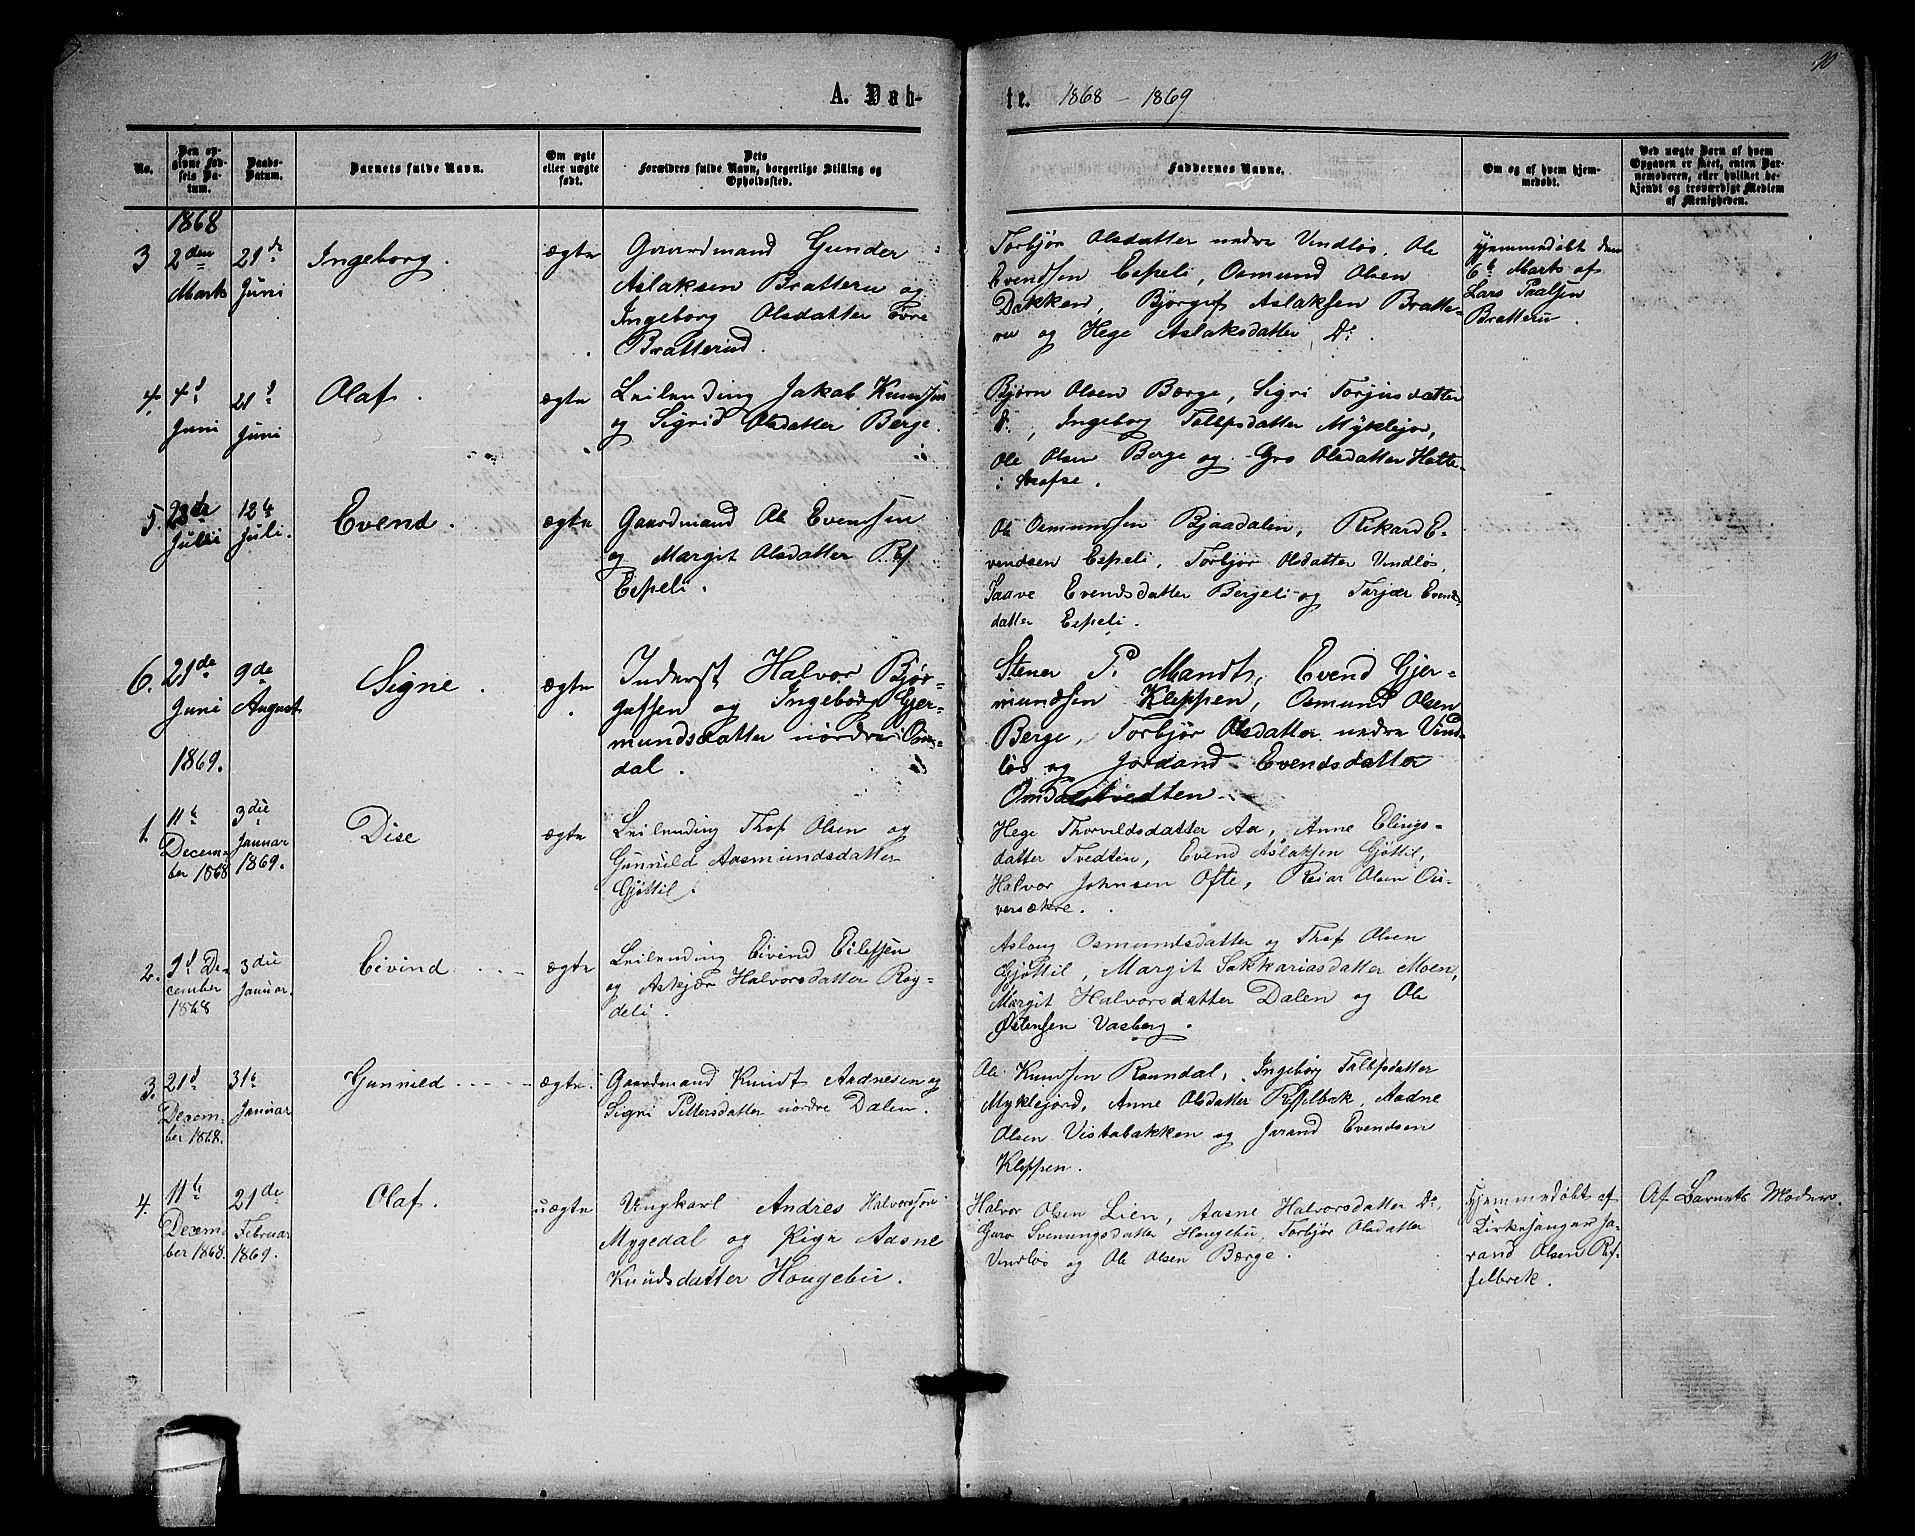 10
A. Dab-
te. 1868 - 1869
No.
Den opgivne Fødsels Datum.
Daabs-Datum.
Barnets fulde Navn.
Om ægte eller uægte født.
Dets Forældres fulde Navn, borgerlige Stilling og Opholdssted.
Faddernes Navne.
Om og af hvem hjemmedøbt.
Ved uægte Børn af hvem Opgaven er skeet, enten Barnemoderen, eller hvilket bekjendt og troværdigt Medlem af Menigheden.
1868
3
2den
Marts
21de
Juni
Ingeborg.
ægte
Gaardmand Gunder
Aslaksen Bratteru og
Ingeborg Olsdatter øvre
Bratterud.
Torbjør Olsdatter nedre Vindløs, Ole
Evendsen Espeli, Osmund Olsen
Bakken, Bjørguf Aslaksen Bratte-
ru og Hege Aslaksdatter Do
Hjemmedøbt den
6te Marts af
Lars Paalsen
Bratteru.
4.
4d
Juni
21d
Juni
Olaf.
ægte
Leilending Jakob Knudsen
og Sigrid Olsdatter Berge.
Bjørn Olsen Berge, Sigri Torjusdatter
d., Ingeborg Tallefsdatter Myklejor,
Ole Olsen Berge og Gro Olsdatter Hatte-
5.
Juli
12te
Juli.
Evend.
ægte
Gaardmand Ole Evendsen
og Margit Olsdatter
Espeli.
Ole Osmundsen Bjaadalen, Rikard E-
vendsen Espeli, Torbjør Olsdatter Vindløs,
Taave Evendsdatter Bergeli og Tarjær Evends
datter Espeli.
6.
21de
Juni
9de
August
Signe.
ægte
Inderst Halvor Bjør-
gufsen og Ingeborg Gjer-
mundsdatter nordre Om-
dal.
Stener P. Mandt, Evend Gjer-
mundsen Kleppen, Osmund Olsen
Berge, Torbjør Olsdatter nedre Vind-
løs og Jordand Evendsdatter
Omdalstvedten.
1869.
1.
11te
Decem-
ber 1868
3die
Januar
1869.
Dise
ægte
Leilending Thof Olsen og
Gunnild Aasmundsdatter
Gjøttil.
Hege Thorvildsdatter Aa, Anne Elings-
datter Tvedten, Evend Aslaksen Gjøttil,
Halvor Johnsen Ofte, Reiar Olsen Ou-
versækre.
2.
9d De-
cember
1868
3die
Januar.
Eivind
ægte
Leilending Eivind Eilefsen
og Askjær Halvorsdatter Røy-
deli.
Aslaug Osmundsdatter og Thof Olsen
Gjøttil, Margit Sakkariasdatter Moen,
Margit Halvorsdatter Dalen og Ole
Østensen Vasberg.
3.
21d
Decem-
ber 1868.
31te
Januar
Gunnild
ægte.
Gaardmand Knudt Aadnesen og
Signi Pettersdatter nordre Dalen.
Ole Knudsen Raundal, Ingeborg Tallefsdatter
Myklejord, Anne Olsdatter Reffelbrek, Aadne
Olsen Vistabakken og Jarand Evendsen
Kleppen.
4.
11te
Decem-
ber 1868.
21de
Februar
1869.
Olaf.
uægte
Ungkarl Andres Halvorsson
Mygedal og Pige Aasne
Knudsdatter Hougebu.
Halvor Olsen Lien, Aasne Halvorsdatter Do,
Guro Svenungsdatter Hougebu, Torbjør Olsdatter
Vindløs og Ole Olsen Berge.
Hjemmedøbt af
Kirkesanger Ja-
rand Olsen Ref-
felbrek.
Af Barnets Moder.